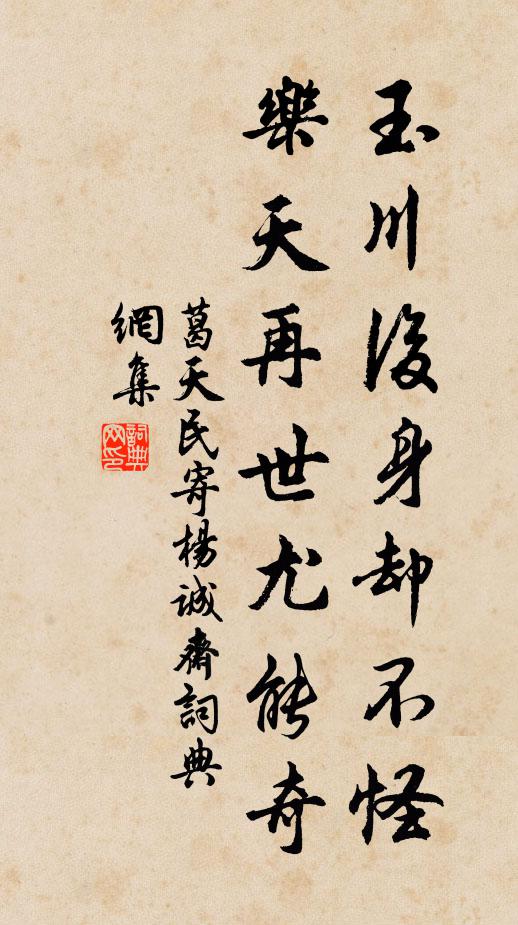 玉川後身却不怪
樂天再世尤能奇
葛天民寄楊誠齋詞典
網集
詞典網印